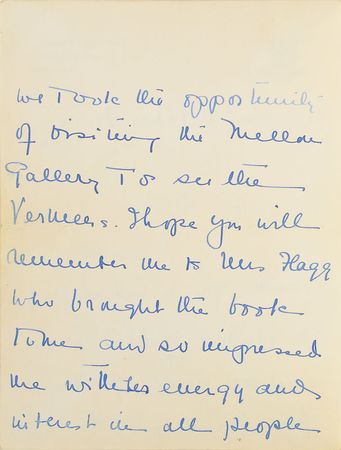 we took the opportunity
of visiting the Mellon
Gallery to see the
Vermeers. I hope you will
remember me to Mrs Flagg
who brought the book
to me and so impressed
me with her energy and
interest in all people